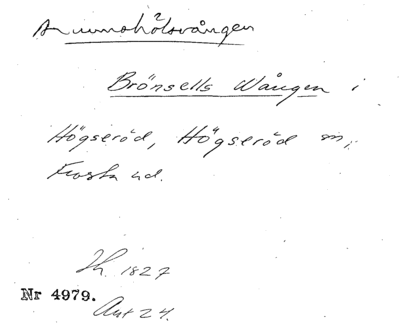 Brönsells Wången i
Högseröd, Högseröd sn,
Frosta hd.
Jh. 1827
Nr 4979.
Akt 24.